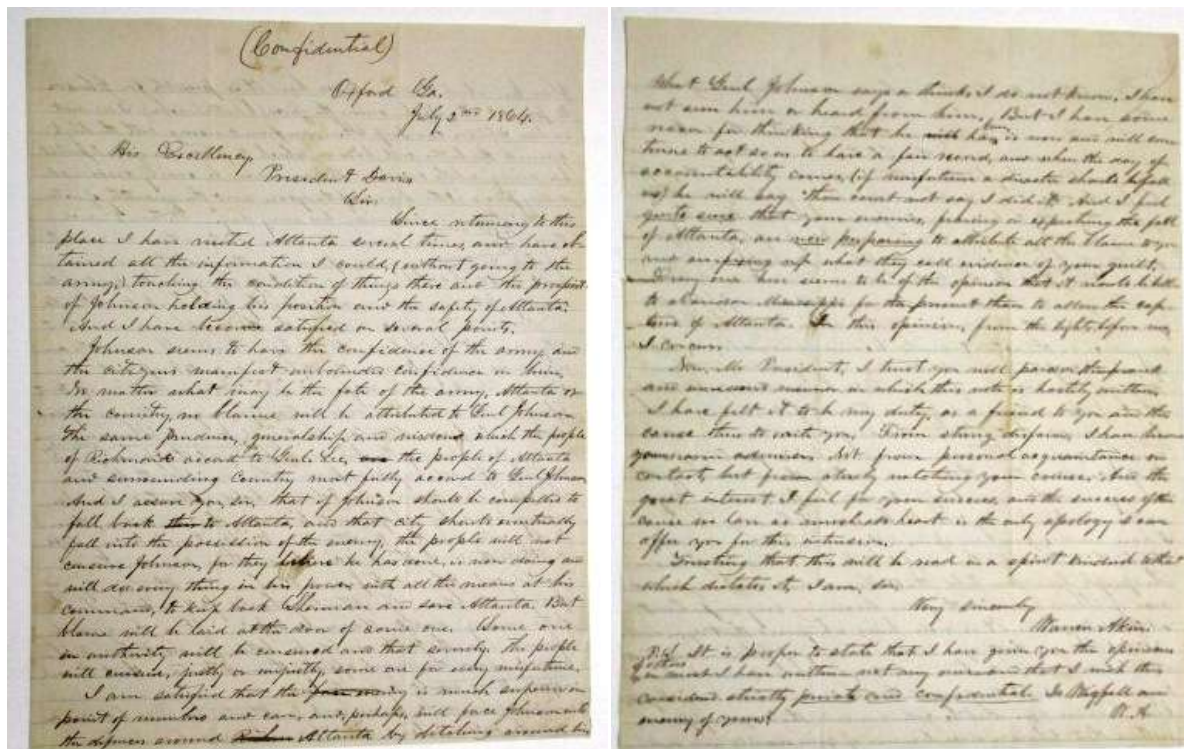 (Confidential)
Oxford Ga.
July 2nd 1864.
His Excellency,
President Davis
Sir.
Since returning to this
place I have visited Atlanta several times, and have ob-
tained all the information I could, (without going to the
army,) touching the condition of things there and the prospect
of Johnson holding his position and the safety of Atlanta.
And I have become satisfied on several points.
Johnson seems to have the confidence of the army and
the citizens manifest unbounded confidence in him.
No matter what may be the fate of the army, Atlanta or
the country, no blame will be attributed to Genl Johnson
The same prudence, generalship and wisdom which the people
of Richmond accord to Genl. Lee, the people of Atlanta
and surrounding Country most fully accord to Genl Johnson
And I assure you, sir, that if Johnson should be compelled to
fall back to Atlanta, and that city should eventually
fall into the possession of the enemy, the people will not
censure Johnson, for they believe he has done, is now doing and
will do every thing in his power, with all the means at his
command, to keep back Sherman and save Atlanta. But
blame will be laid at the door of some one. Some one
in authority will be censured and that severely. The people
will censure, justly or unjustly, some one for every misfortune.
I am satisfied that the enemy is much superior in
point of numbers and can, and, perhaps, will force Johnson into
the defences around Atlanta by ditching around his
What Genl Johnson says or thinks, I do not know. I have
not seen him or heard from him. But I have some
reason for thinking that he has is now and will con-
tinue to act so as to have a fair record, and when the day of
accountability comes, (if misfortune or disaster should befall
us) he will say "thou canst not say I did it." And I feel
quite sure that your enemies, fearing or expecting the fall
of Atlanta, are now preparing to attribute all the blame to you
and are fixing up what they call evidence of your guilt.
Every one here seems to be of the opinion that it would be better
to abandon Mississippi for the present than to allow the cap-
ture of Atlanta. In this opinion, from the lights before me,
I concur.
Now, Mr President, I trust you will pardon the frank
and manner in which this note is hastily written.
I have felt it to be my duty, as a friend to you and the
cause thus to write you. From
your admirer. Not from personal acquaintance or
contact, but from closely watching your course. And the
great interest I feel for your success, and the success of the
cause we have so much at heart is the only apology I can
offer you for this intrusion.
Trusting that this will be read in a spirit kindred to that
which dictates it, I am, sir,
Very sincerely
Warren Akin
P.S. It is proper to state that I have given you the opinions
of others
I have written not any one and that I wish this
considered strictly private and confidential. Is Wigfall an
enemy of yours?
W. A.